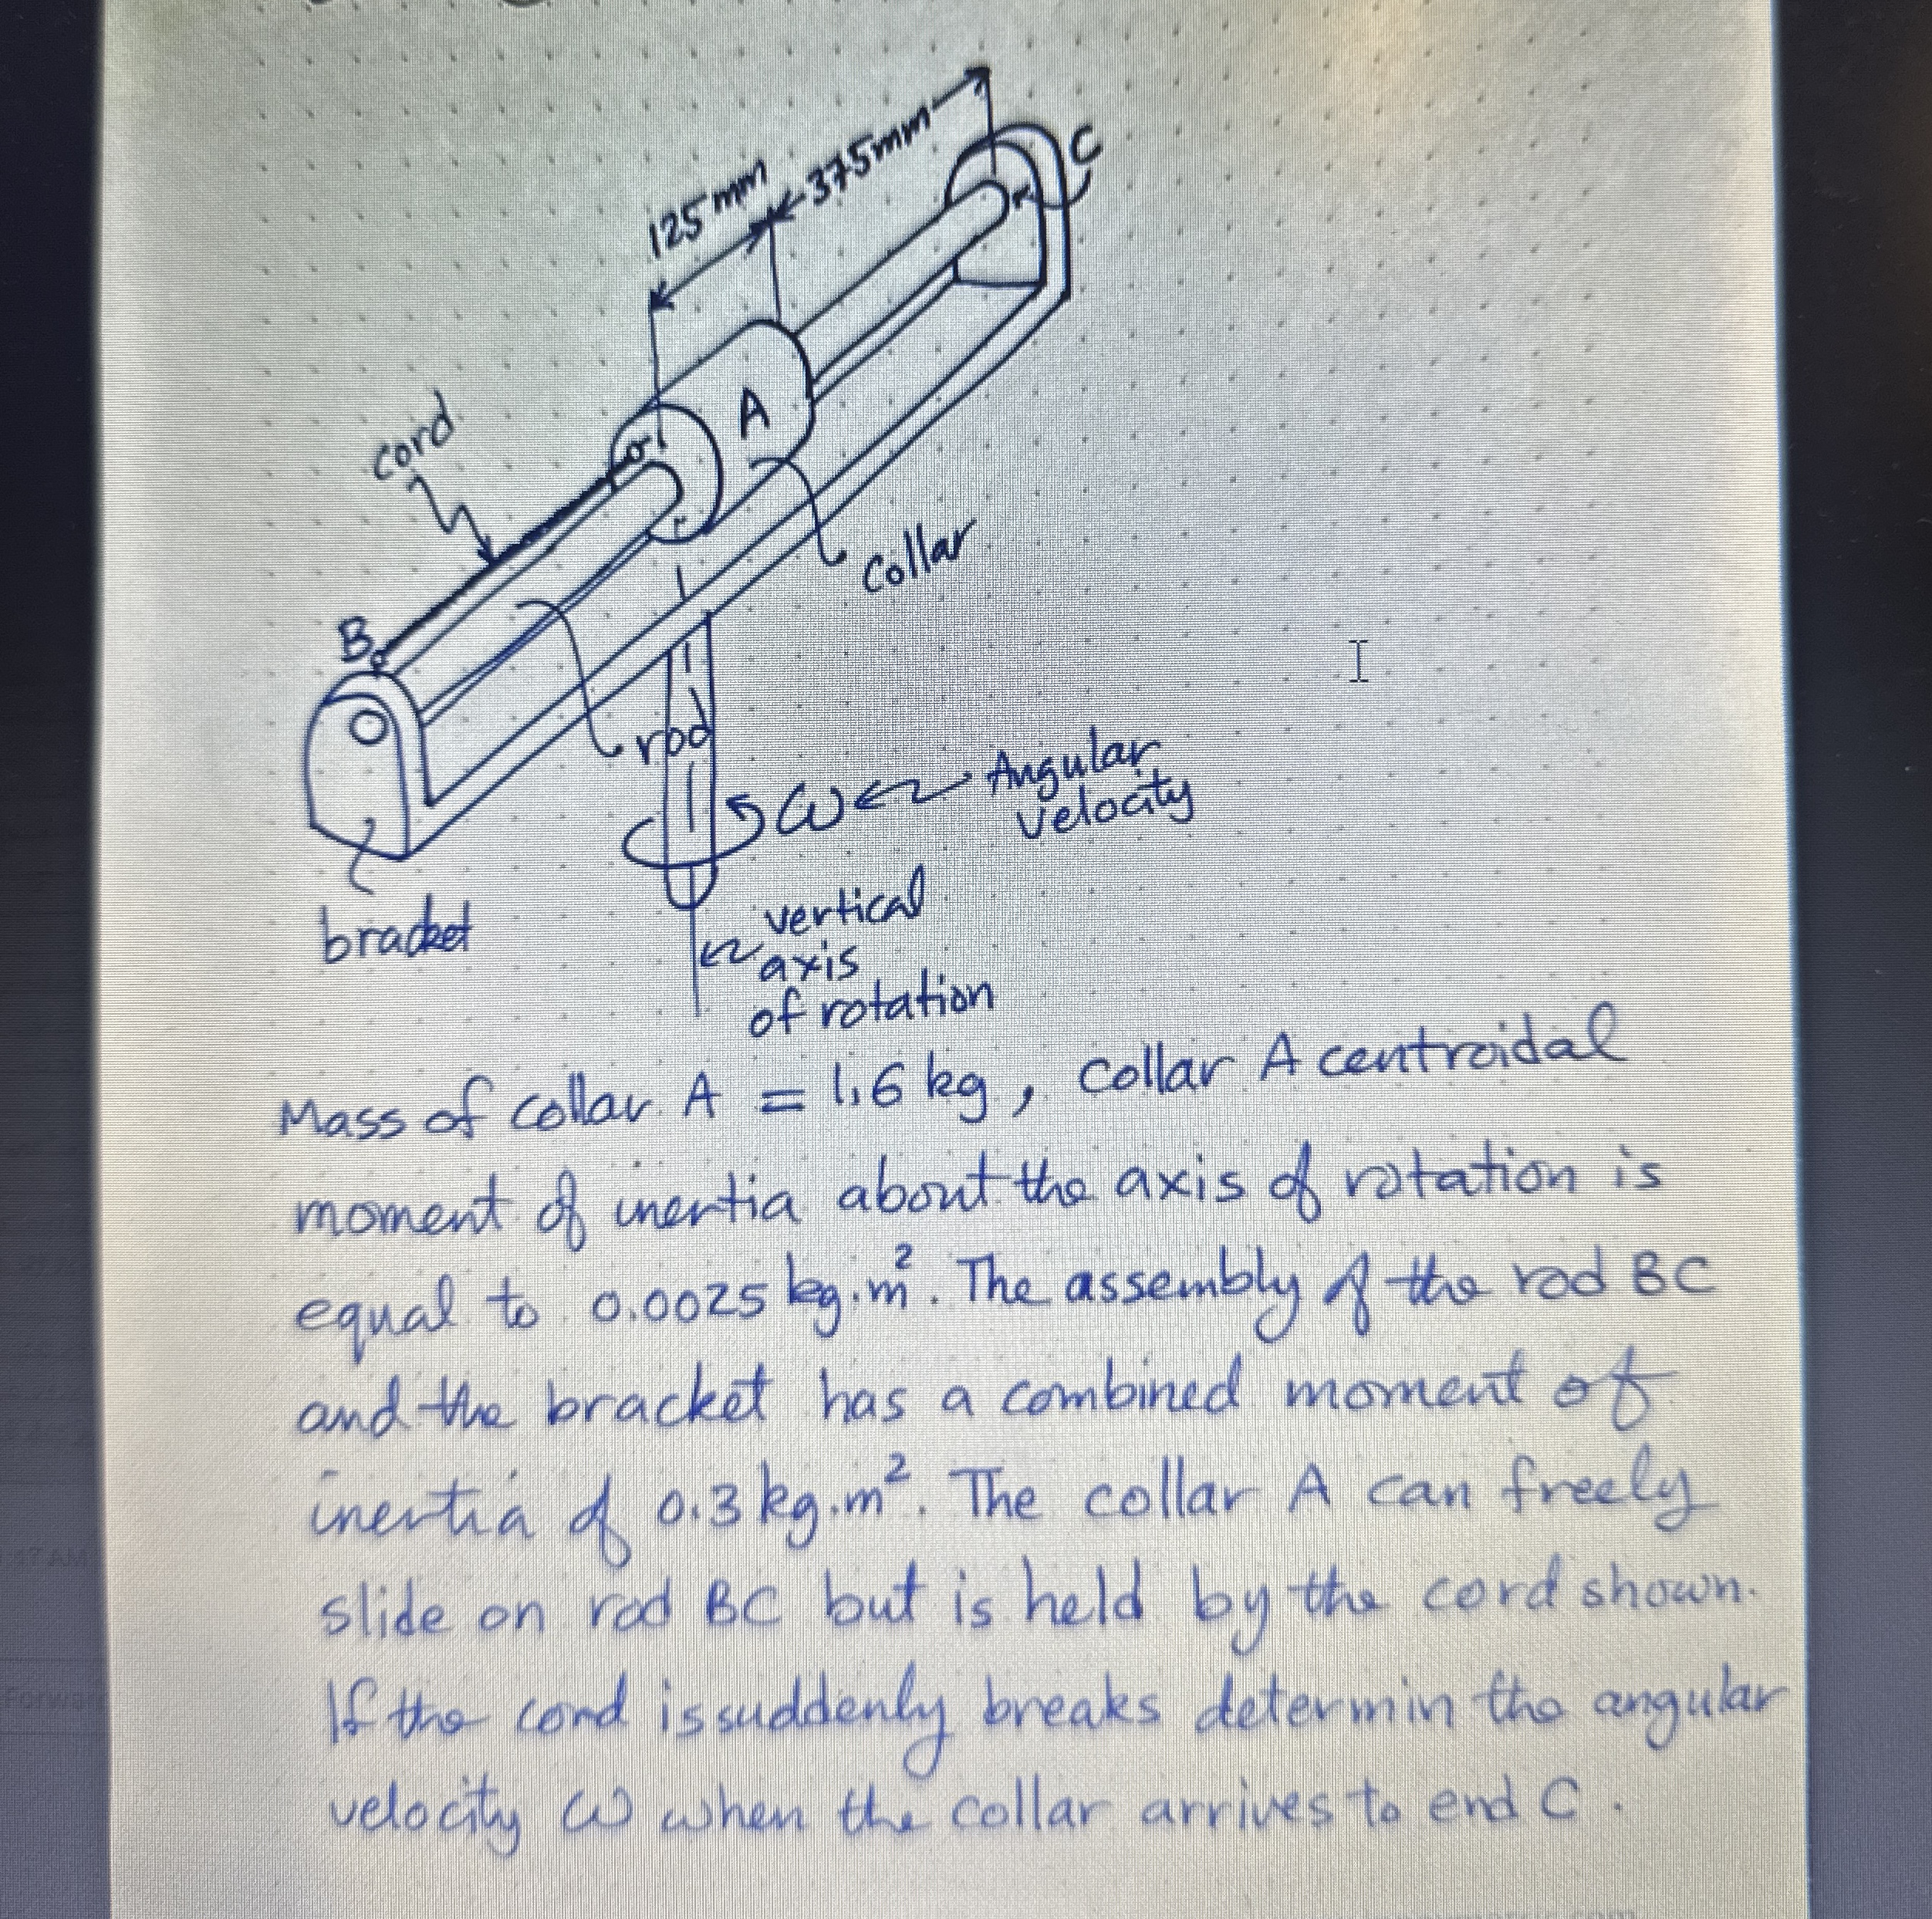 125mm
375mm
C
A
cord
collar
B
rod
ω
Angular
velocity
bracket
vertical
axis
of rotation
Mass of collar A = 1.6 kg, collar A centroidal
moment of inertia about the axis of rotation is
equal to 0.0025 kg.m². The assembly of the rod BC
and the bracket has a combined moment of
inertia of 0.3 kg.m². The collar A can freely
slide on rod BC but is held by the cord shown.
If the cord is suddenly breaks determin the angular
velocity ω when the collar arrives to end C.